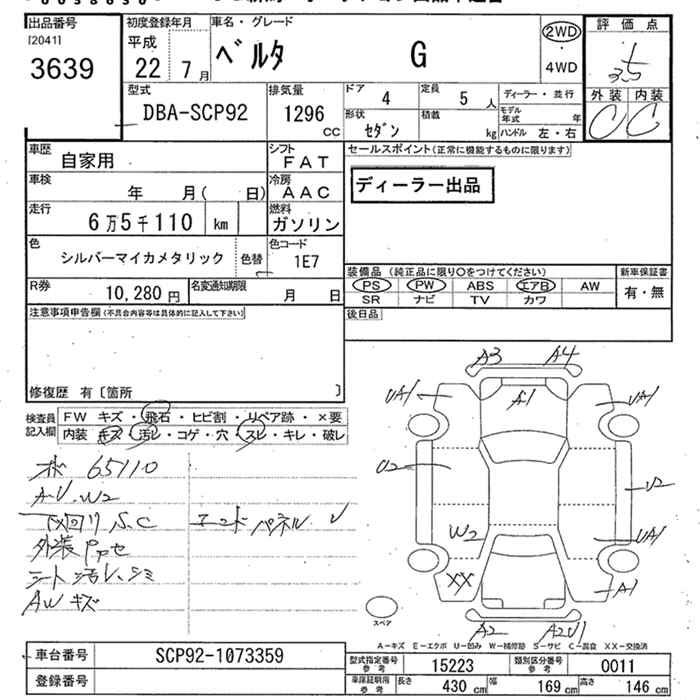 出品番号
[20411
3639
初度登録年月
平成
22年7月
車名・グレード
ベルタ G
2WD
・
4WD
評価点
3.5
外装 内装
C C
型式
DBA-SCP92
排気量
1296
CC
ドア 4
定員 5人
形状 セダン
積載 kg
ディーラー・並行
モデル年式 年
ハンドル 左・右
車歴 自家用
シフト FAT
車検 年 月( 日)
冷房 AAC
走行 6万5千110 km
燃料 ガソリン
色 シルバーマイカメタリック 色替
色コード 1E7
R券 10,280円
名変通知期限 月 日
セールスポイント(正常に機能するものに限ります)
ディーラー出品
装備品 (純正品に限り○をつけてください)
PS PW ABS エアB AW
SR ナビ TV カワ
新車保証書
有・無
後日品
注意事項申告欄(不具合内容等は具体的に記入して下さい)
修復歴 有〔箇所 〕
検査員記入欄
FW キズ・飛石・ヒビ割・リペア跡・×要
内装 キズ・汚レ・コゲ・穴・スレ・キレ・破レ
65110
A・U・W2
下回り S.C
エンドパネル
外装
シート 汚レ、シミ
AW キズ
A3 A4
UA1 A1 UA1
U2 U2
W2 UA1
XX A1
A2 A2U1
スペア
A－キズ E－エクボ U－凹み W－補修跡 S－サビ C－腐食 XX－交換済
車台番号 SCP92-1073359
登録番号
型式指定番号 参考 15223
類別区分番号 参考 0011
車庫証明用 参考 長さ 430 cm 幅 169 cm 高さ 146 cm